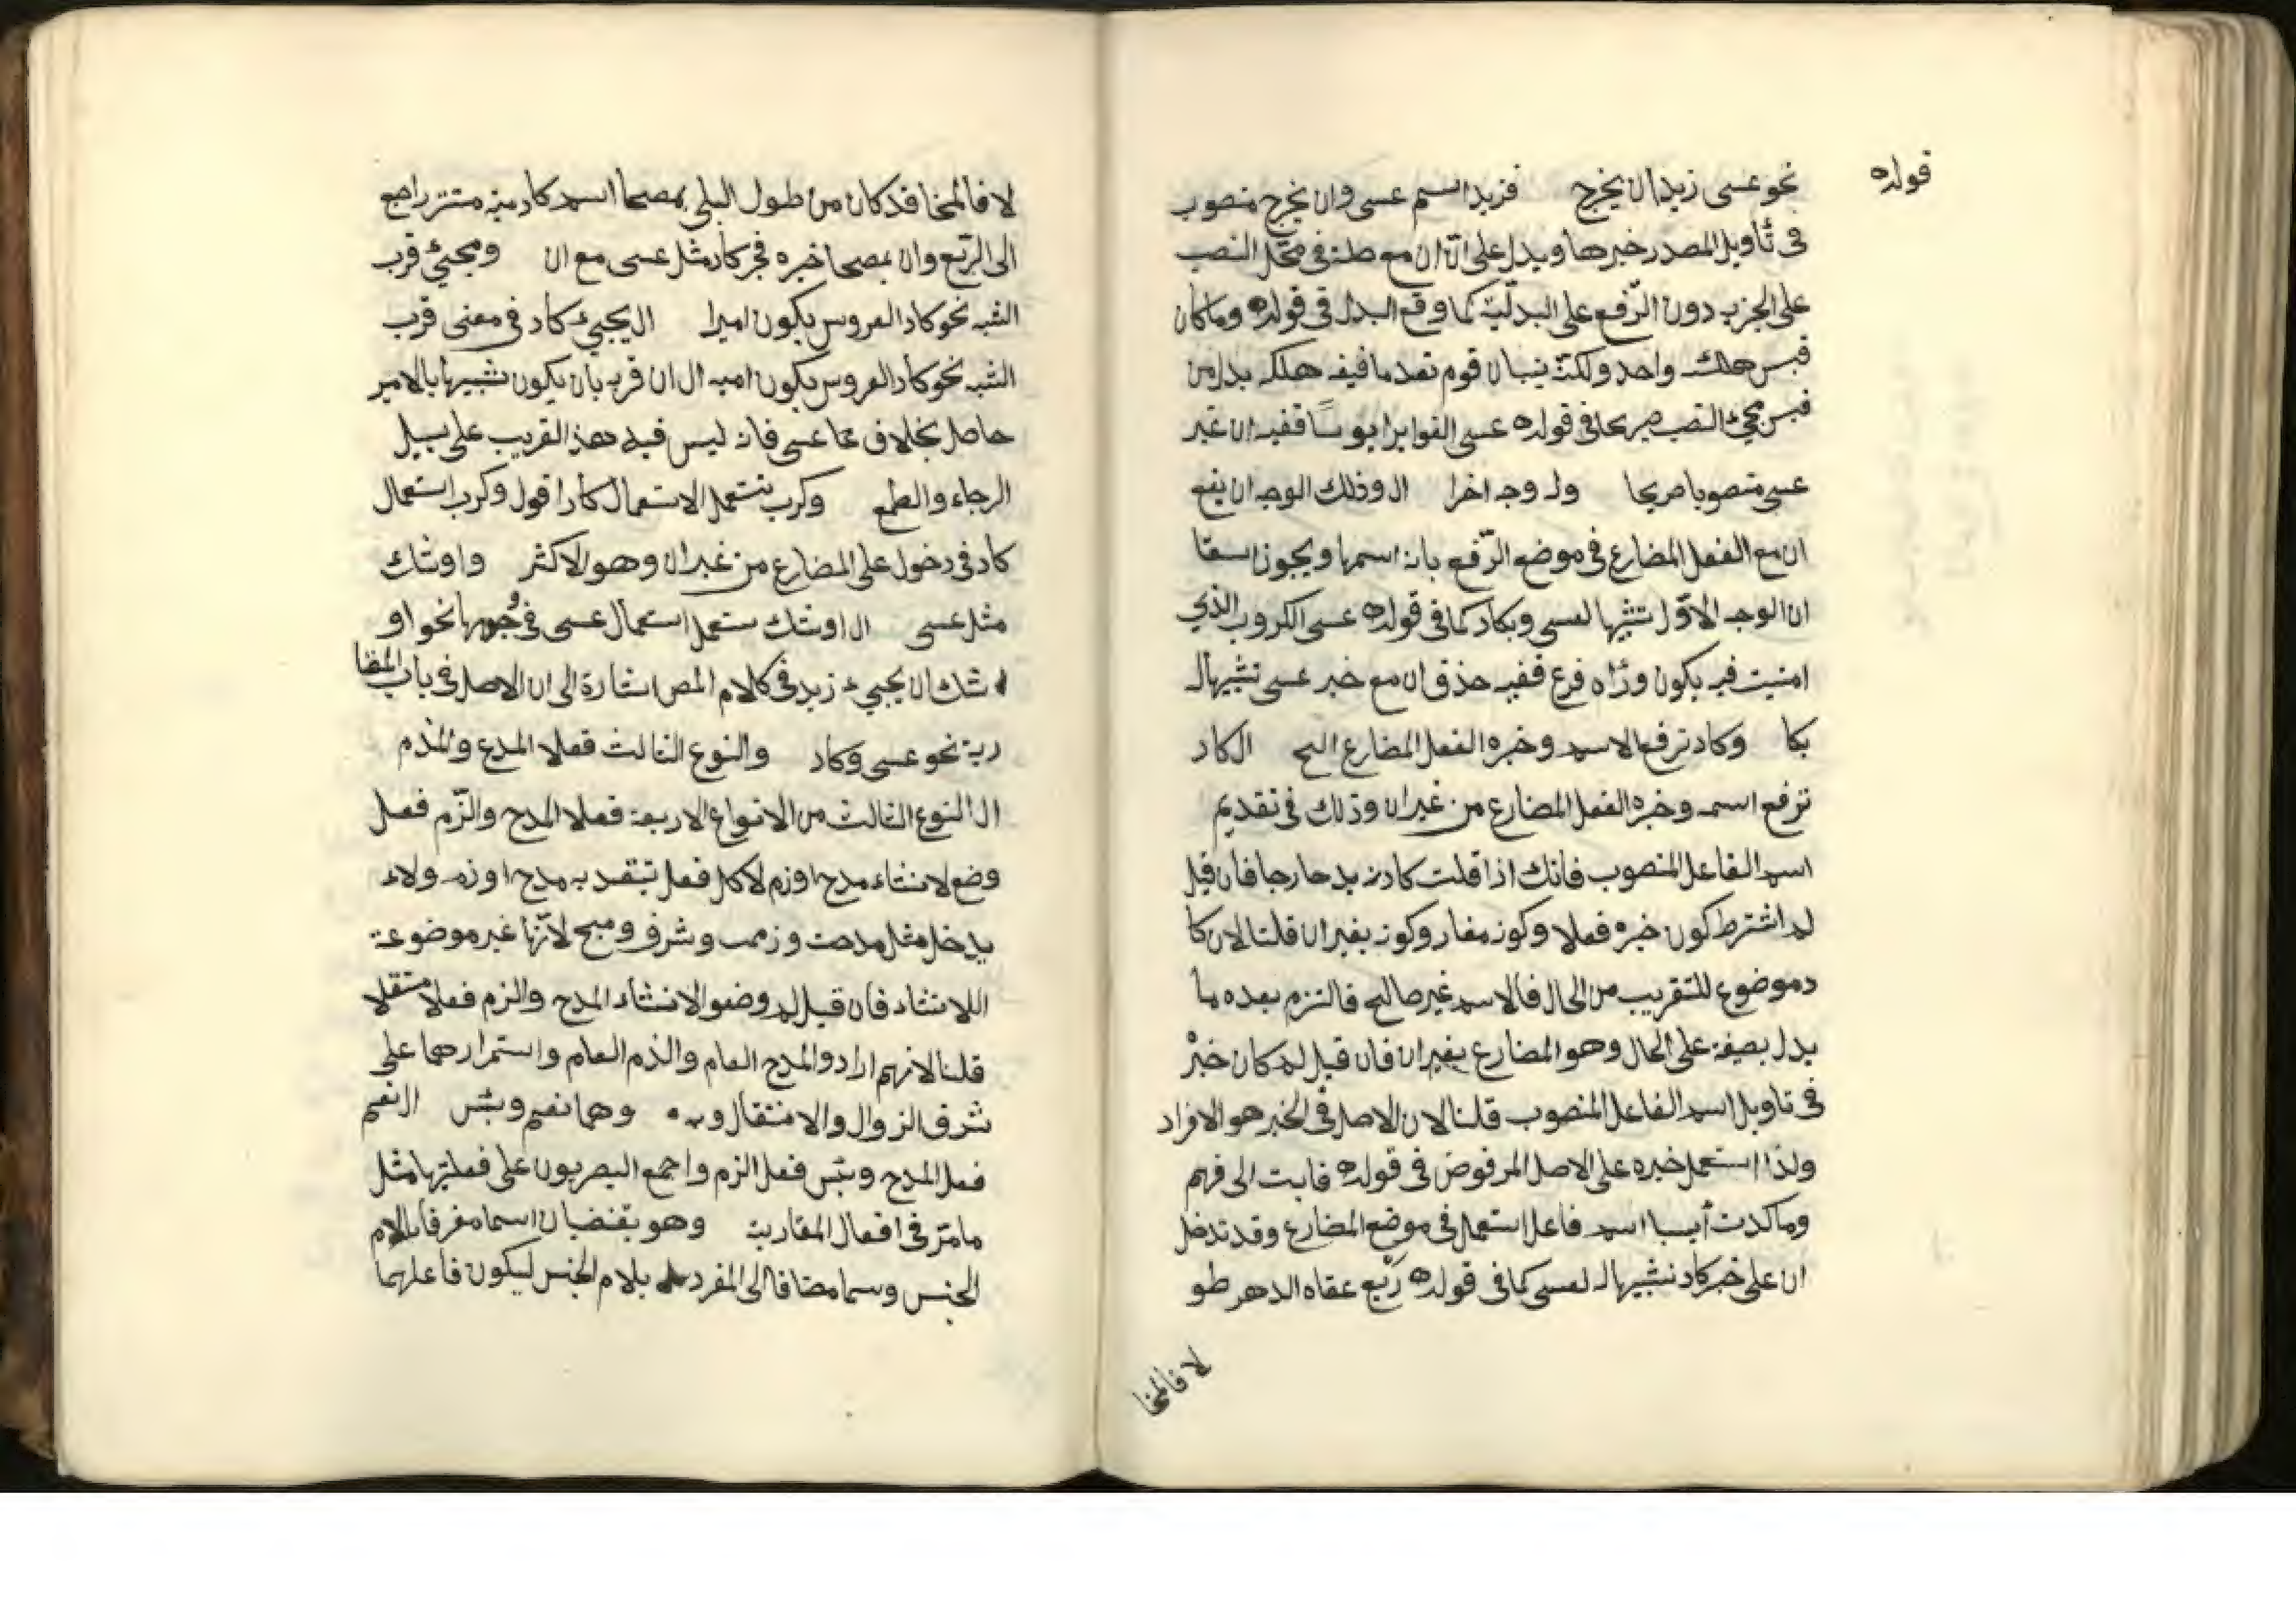 قوله
نحو عسى زيدان يخرج فزيد اسم عسى وان يخرج منصوب
فى تأويل المصدر خبرها ويدل على انّ ان مع صلته فى محّل النصب
على الجزيه دون الرّفع على البدليّة كما وقع البدل فى قوله وما كان
قبس هلك واحد ولكنّه ينبان قوم تهدما فيفه هلكه بدل من
قبس مجئ النصب صريحا فى قوله عسى الغوايرا بوسًا ففيه ان غير
عسى منصوبا صريحا وله وجه اخرا ال وذلك الوجه ان يقع
ان مع الفعل المضارع فى موضع الرّفع بانه اسمها ويجوز اسقا
ان الوجه الاوّل تشيها لعسى وبكاد كما فى قوله عسى الكروب الذي
امنيت فيه يكون ورٔاه فرع ففيه حذف ان مع خبر عسى تشيها له
بكا وكاد ترفع الاسم وخبره الفعل المضارع البح ال كاد
ترفع اسمه وخبره الفعل المضارع من غير ان وذلك فى تقديم
اسم الفاعل المنصوب فانك اذا قلت كاد زيد حارجا فان قيل
لم اشترط كون خبره فعلا وكونه مضار وكونه بغير ان قلنا لان كا
د موضوع للتقريب من الحال فالاسم غير صالح فالتزم بعده ما
يدل بصيغة على الحال وهو المضارع بغير ان فان قيل لم كان خبرْ
فى تاويل اسم الفاعل المنصوب قلنا لان الاصل فى الخبر هو الافراد
ولذا استعمل خبره على الاصل المرفوض فى قوله فابت الى فهم
وما كدت أيبا اسم فاعل استعمل فى موضع المضارع وقد تدخل
ان على خبر كاد نشيها له لعسى كما فى قوله ربّع عفاه الدهر طو
لا فالمخا
لا فالمخا قد كان من طول البلى يمصحا اسم كاد منه مستتر راجع
الى الرّبع وان يمصحا خبره فجر كاد مثل عسى مع ان ومجيئ قرب
الشبه نحو كاد العروس يكون اميرا ال يجيئ كاد فى معنى قرب
الشبه نحو كاد العروس يكون اميه ال ان قربه بان يكون تشبيها بالامير
حاصل بخلاف عا عسى فانه ليس فيه هذ القريب على سبيل
الرجاء والطمع وكرب تستعمل الاستعمال كاد اقول وكرب استعمال
كاد فى دخول على المضارع من غير ان وهو الاكثر واوشك
مثل عسى ال اوشك ستعمل استعمال عسى فى وجوبها نحو او
شك ان يجيئ زيد فى كلام المص اشارة الى ان الاصل فى باب المقا
ربة نحو عسى وكاد والنوع الثالث فعلا المدع والمذم
ال النوع الثالث من الانواع الاربعة فعلا المدح والزّم فعل
وضع لا نشاء مدح اوزم لا كل فعل تبقد به مدح اوزم ولاء
يدخل مثل مدحت وزمت وشرف وميح لانّها غير موضوعة
اللانشاء فان قيل لم وضعوا لانشاء المدح والزم فعلا مستقلا
قلنا لانهم ارادوا المدح العام والذم العام واستمرارهما على
شرف الزوال والانتقال وبه وهما نعم وبئس ال نعم
فعل المدح وبئس فعل الزم واجمع البصريون على فعليتها مثل
ما مرّ فى افعال المقاربة وهو يقتضيان اسما مفرفا بالام
الجنس وسما مضافا الى المفرد بلام الجنس ليكون فاعلهما